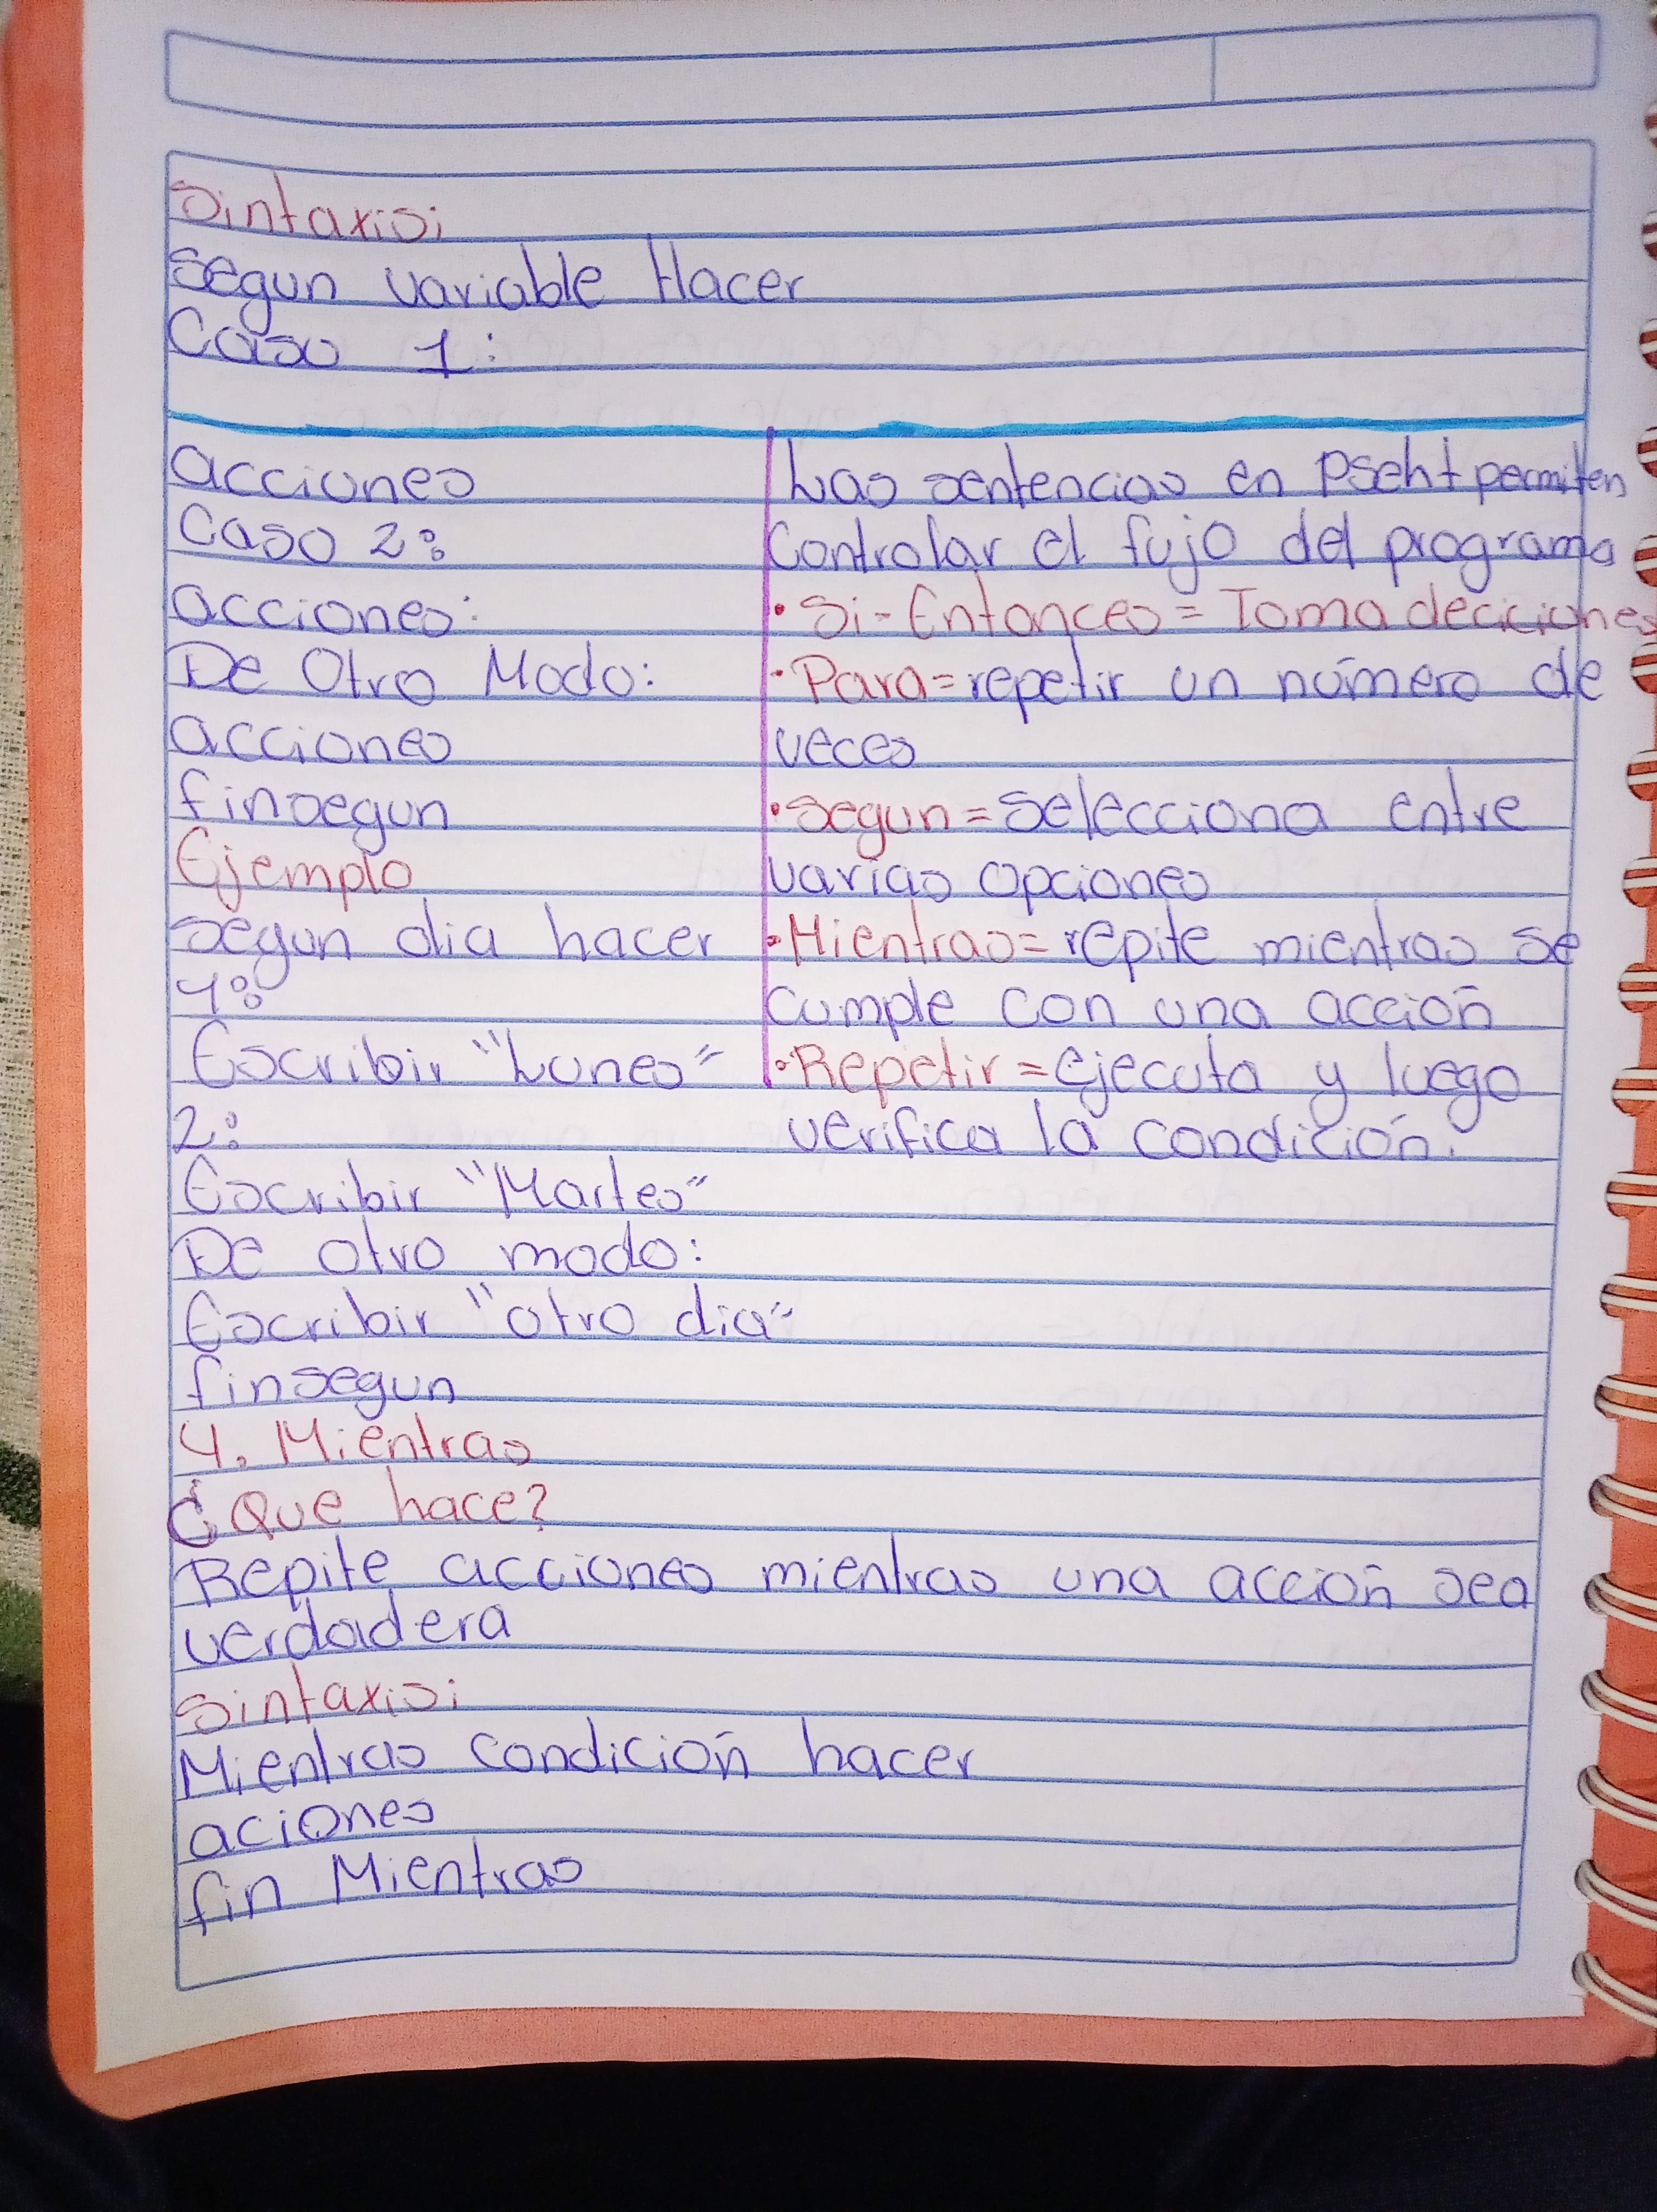 Sintaxis:
Segun variable Hacer
Caso 1:
acciones
Caso 2:
acciones:
De Otro Modo:
acciones
finsegun
Ejemplo
Segun dia hacer
1:
Escribir "Lunes"
2:
Escribir "Martes"
De otro modo:
Escribir "otro dia"
finsegun
Las sentencias en Pseht permiten
Controlar el fujo del programa
• Si-Entonces = Toma deciciones
• Para = repetir un número de
veces
• Segun = Selecciona entre
varias opciones
• Mientras = repite mientras se
cumple con una acción
• Repetir = Ejecuta y luego
verifica la condición.
4. Mientras
¿Que hace?
Repite acciones mientras una acción sea
verdadera
Sintaxis:
Mientras condición hacer
aciones
fin Mientras